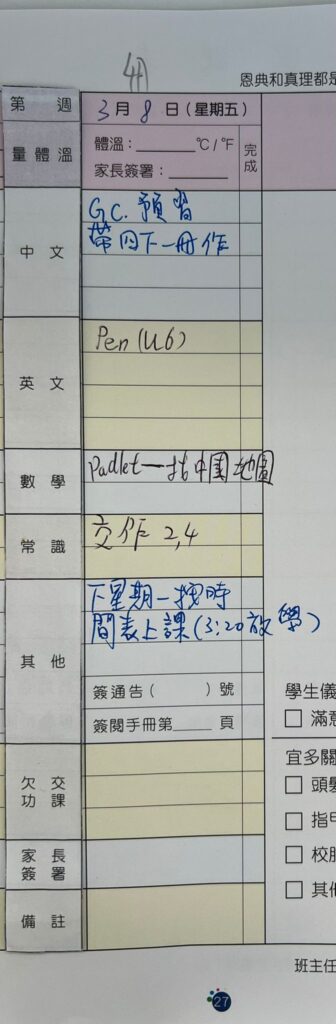 4A
恩典和真理都是
第 週 3月8日(星期五)
量體溫 體溫：______°C/°F 完成
家長簽署：______
中文 G.C. 預習
帶四下一冊作
英文 Pen (U6)
數學 Padlet一 中國地圖
常識 交作 2,4
其他 下星期一按時
間表上課(3:20放學)
簽通告( )號
簽閱手冊第____頁
欠交功課
家長簽署
備註
學生儀
□ 滿意
宜多關
□ 頭髮
□ 指甲
□ 校服
□ 其他
班主任
27